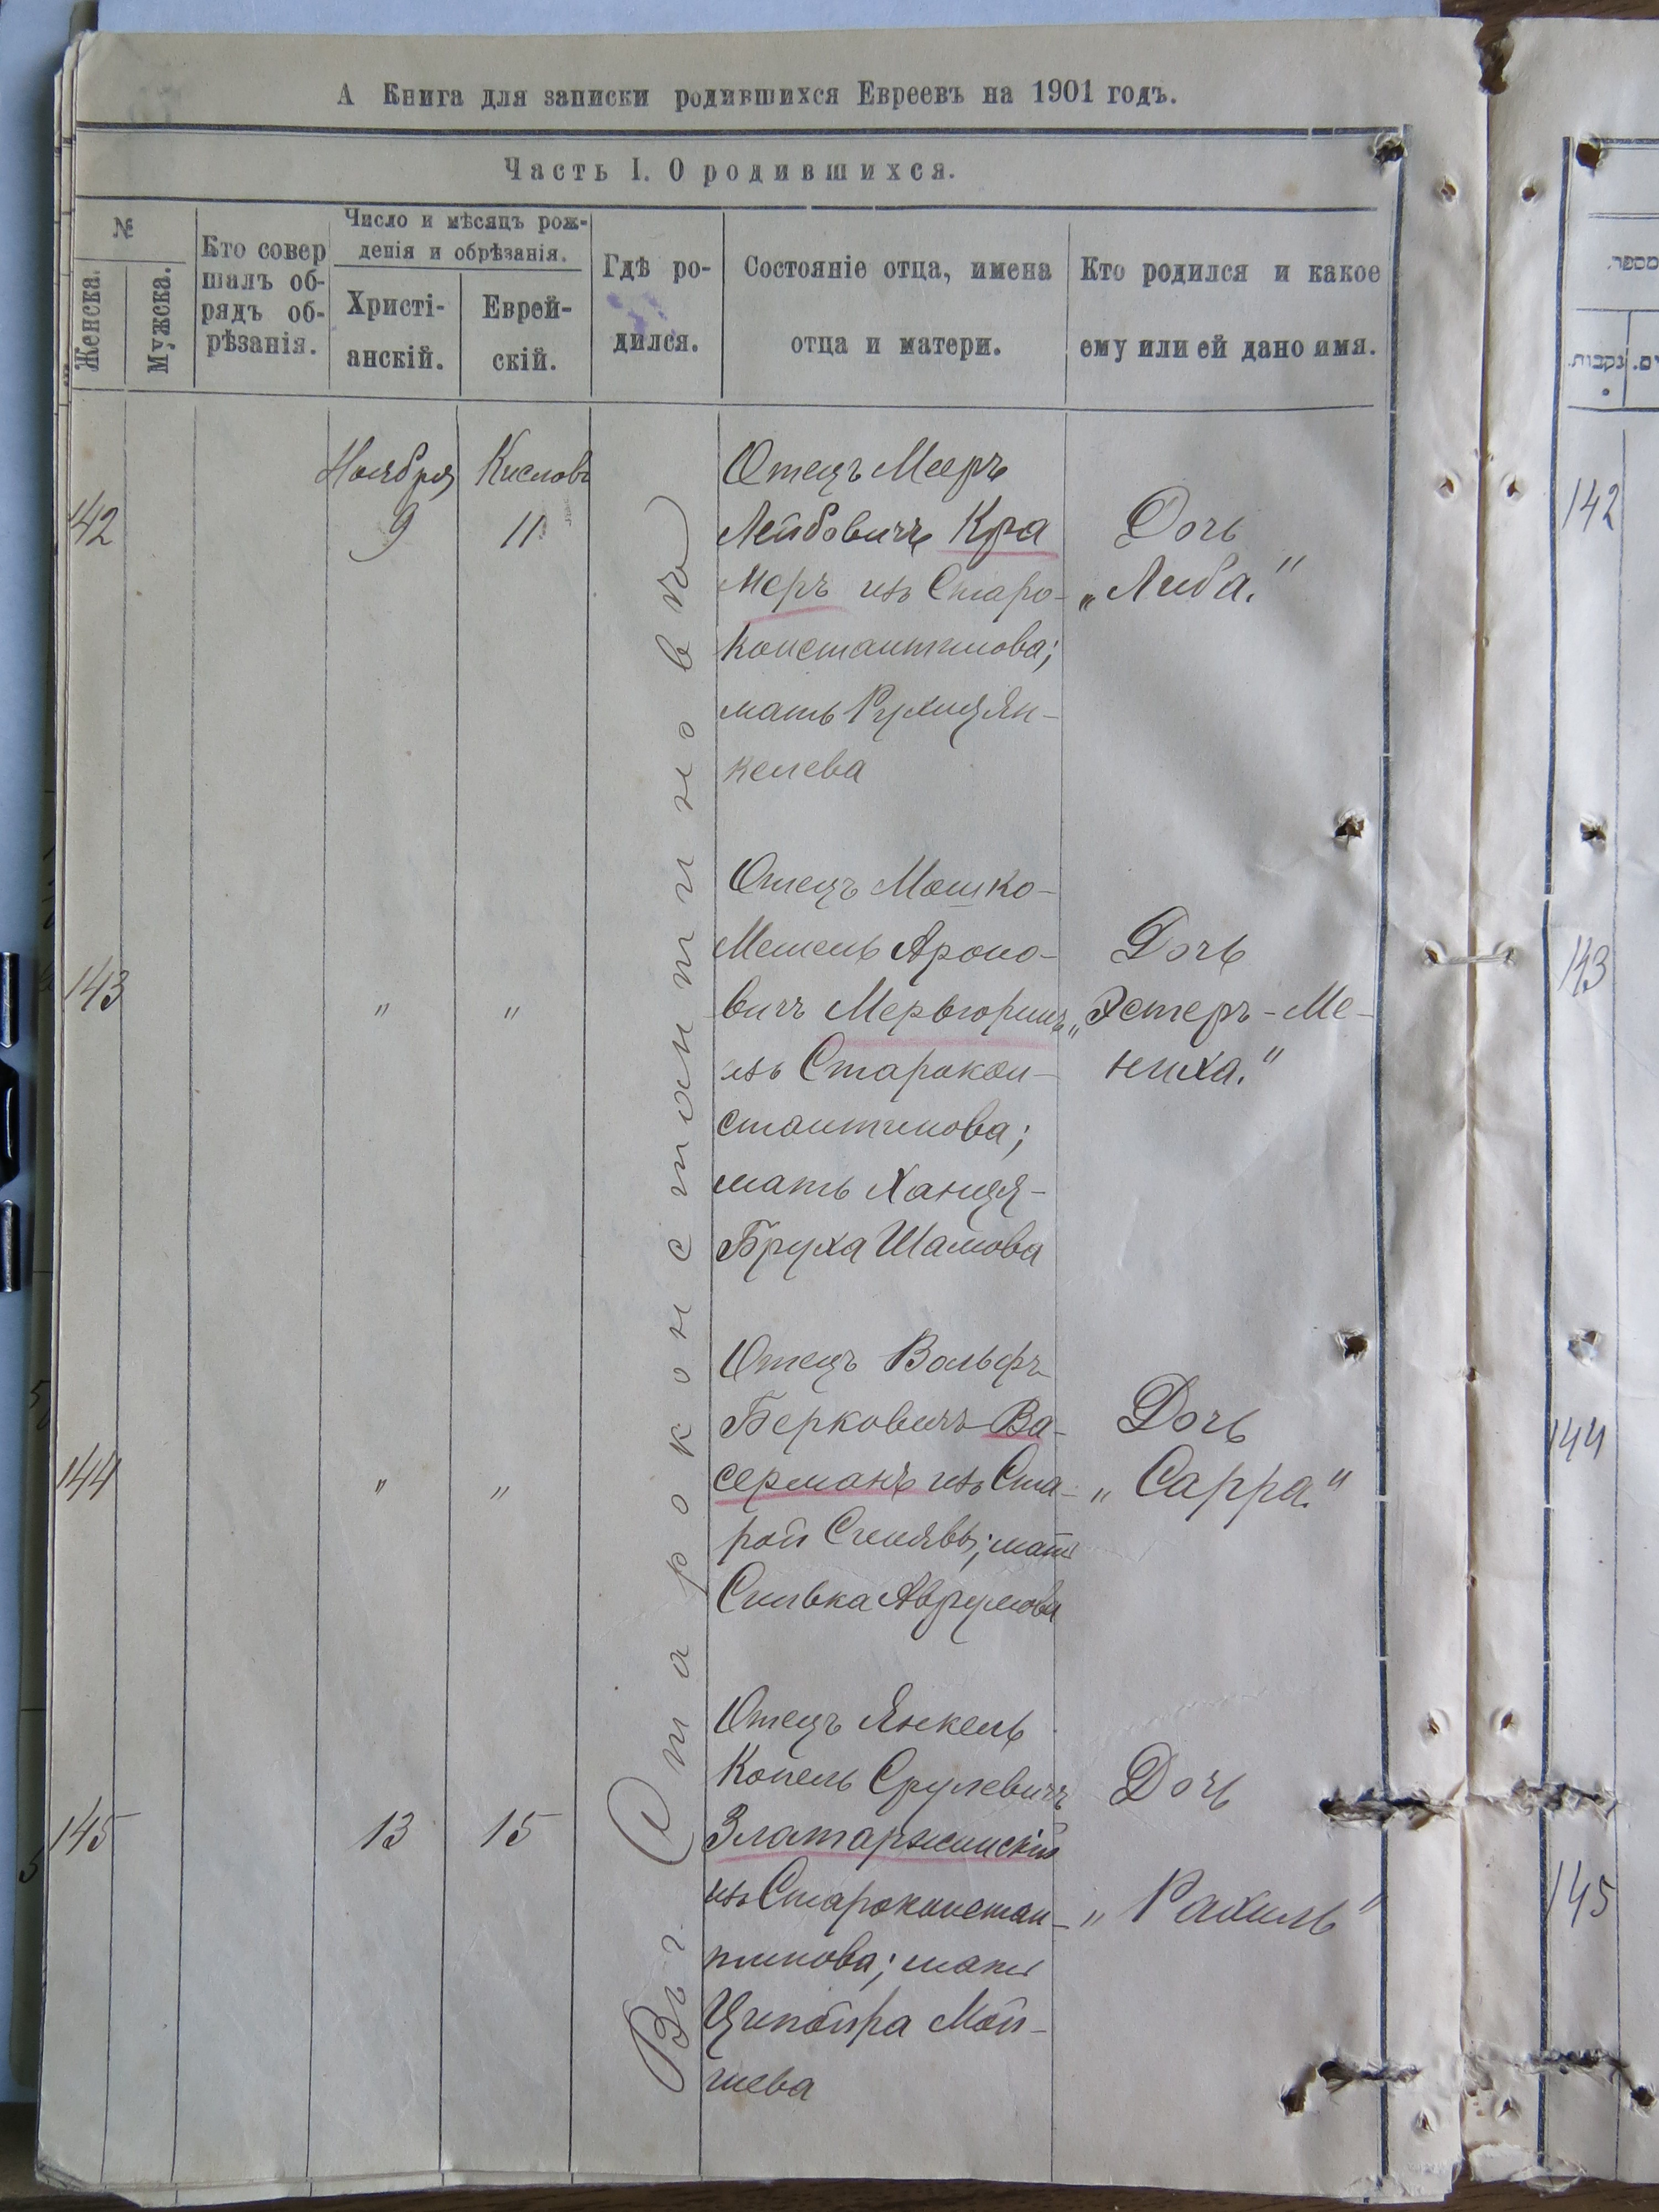 А Книга для записки родившихся Евреевъ на 1901 годъ.
Часть I. О родившихся.
№
Женска.
Мужска.
Кто совер
шалъ об-
рядъ об-
рѣзанія.
Число и мѣсяцъ рож-
денія и обрѣзанія.
Христі-
анскій.
Еврей-
скій.
Гдѣ ро-
дился.
Состояніе отца, имена
отца и матери.
Кто родился и какое
ему или ей дано имя.
Въ г. Староконстантиновѣ
142
Ноября
9
Кисловъ
11
Отецъ Мееръ
Лейбовичъ Кра
меръ изъ Старо-
константинова;
мать Рухля Ян-
келева
Дочь
„Либа."
143
"
"
Отецъ Мошко-
Мешель Ароно-
вичъ
изъ Старокон-
стантинова;
мать Ханця-
Бруха Шамова
Дочь
„Эстеръ-Ме-
ниха."
144
"
"
Отецъ Вольфъ
Берковичъ Ва-
серманъ изъ Ста-
рой Синявы; мать
Сивка Аврумова
Дочь
„Сарра."
145
13
15
Отецъ Янкель
Копель Срулевичъ
Златаржинскій
изъ Староконстан-
тинова; мать
Ципойра Мой-
шева
Дочь
„Рахиль"
מספר.
נקבות.
142
143
144
145